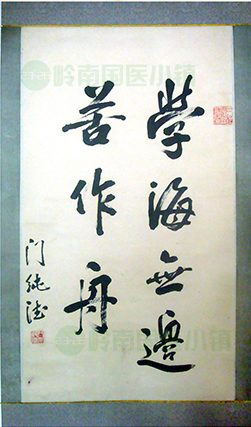 學海無邊
苦作舟
门纯德
岭南国医小镇
岭南国医小镇